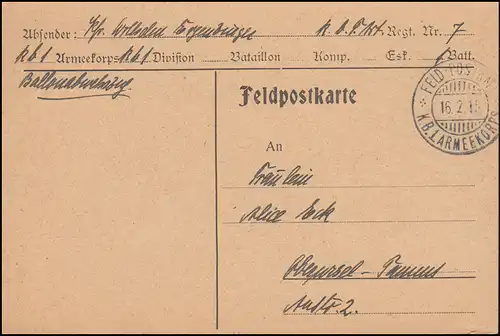 Absender: Wilhelm K. B. F. Art. Regt. Nr. 7
K b 1 Armeekorps K b 1 Division Bataillon Komp. Esk. Batt.
Ballonabwehrzug
Feldpostkarte
FELD-POST
16.2.
K.B.I.ARMEEKORPS
An
Fräulein
Alice Eck
Oberursel - Taunus
2.